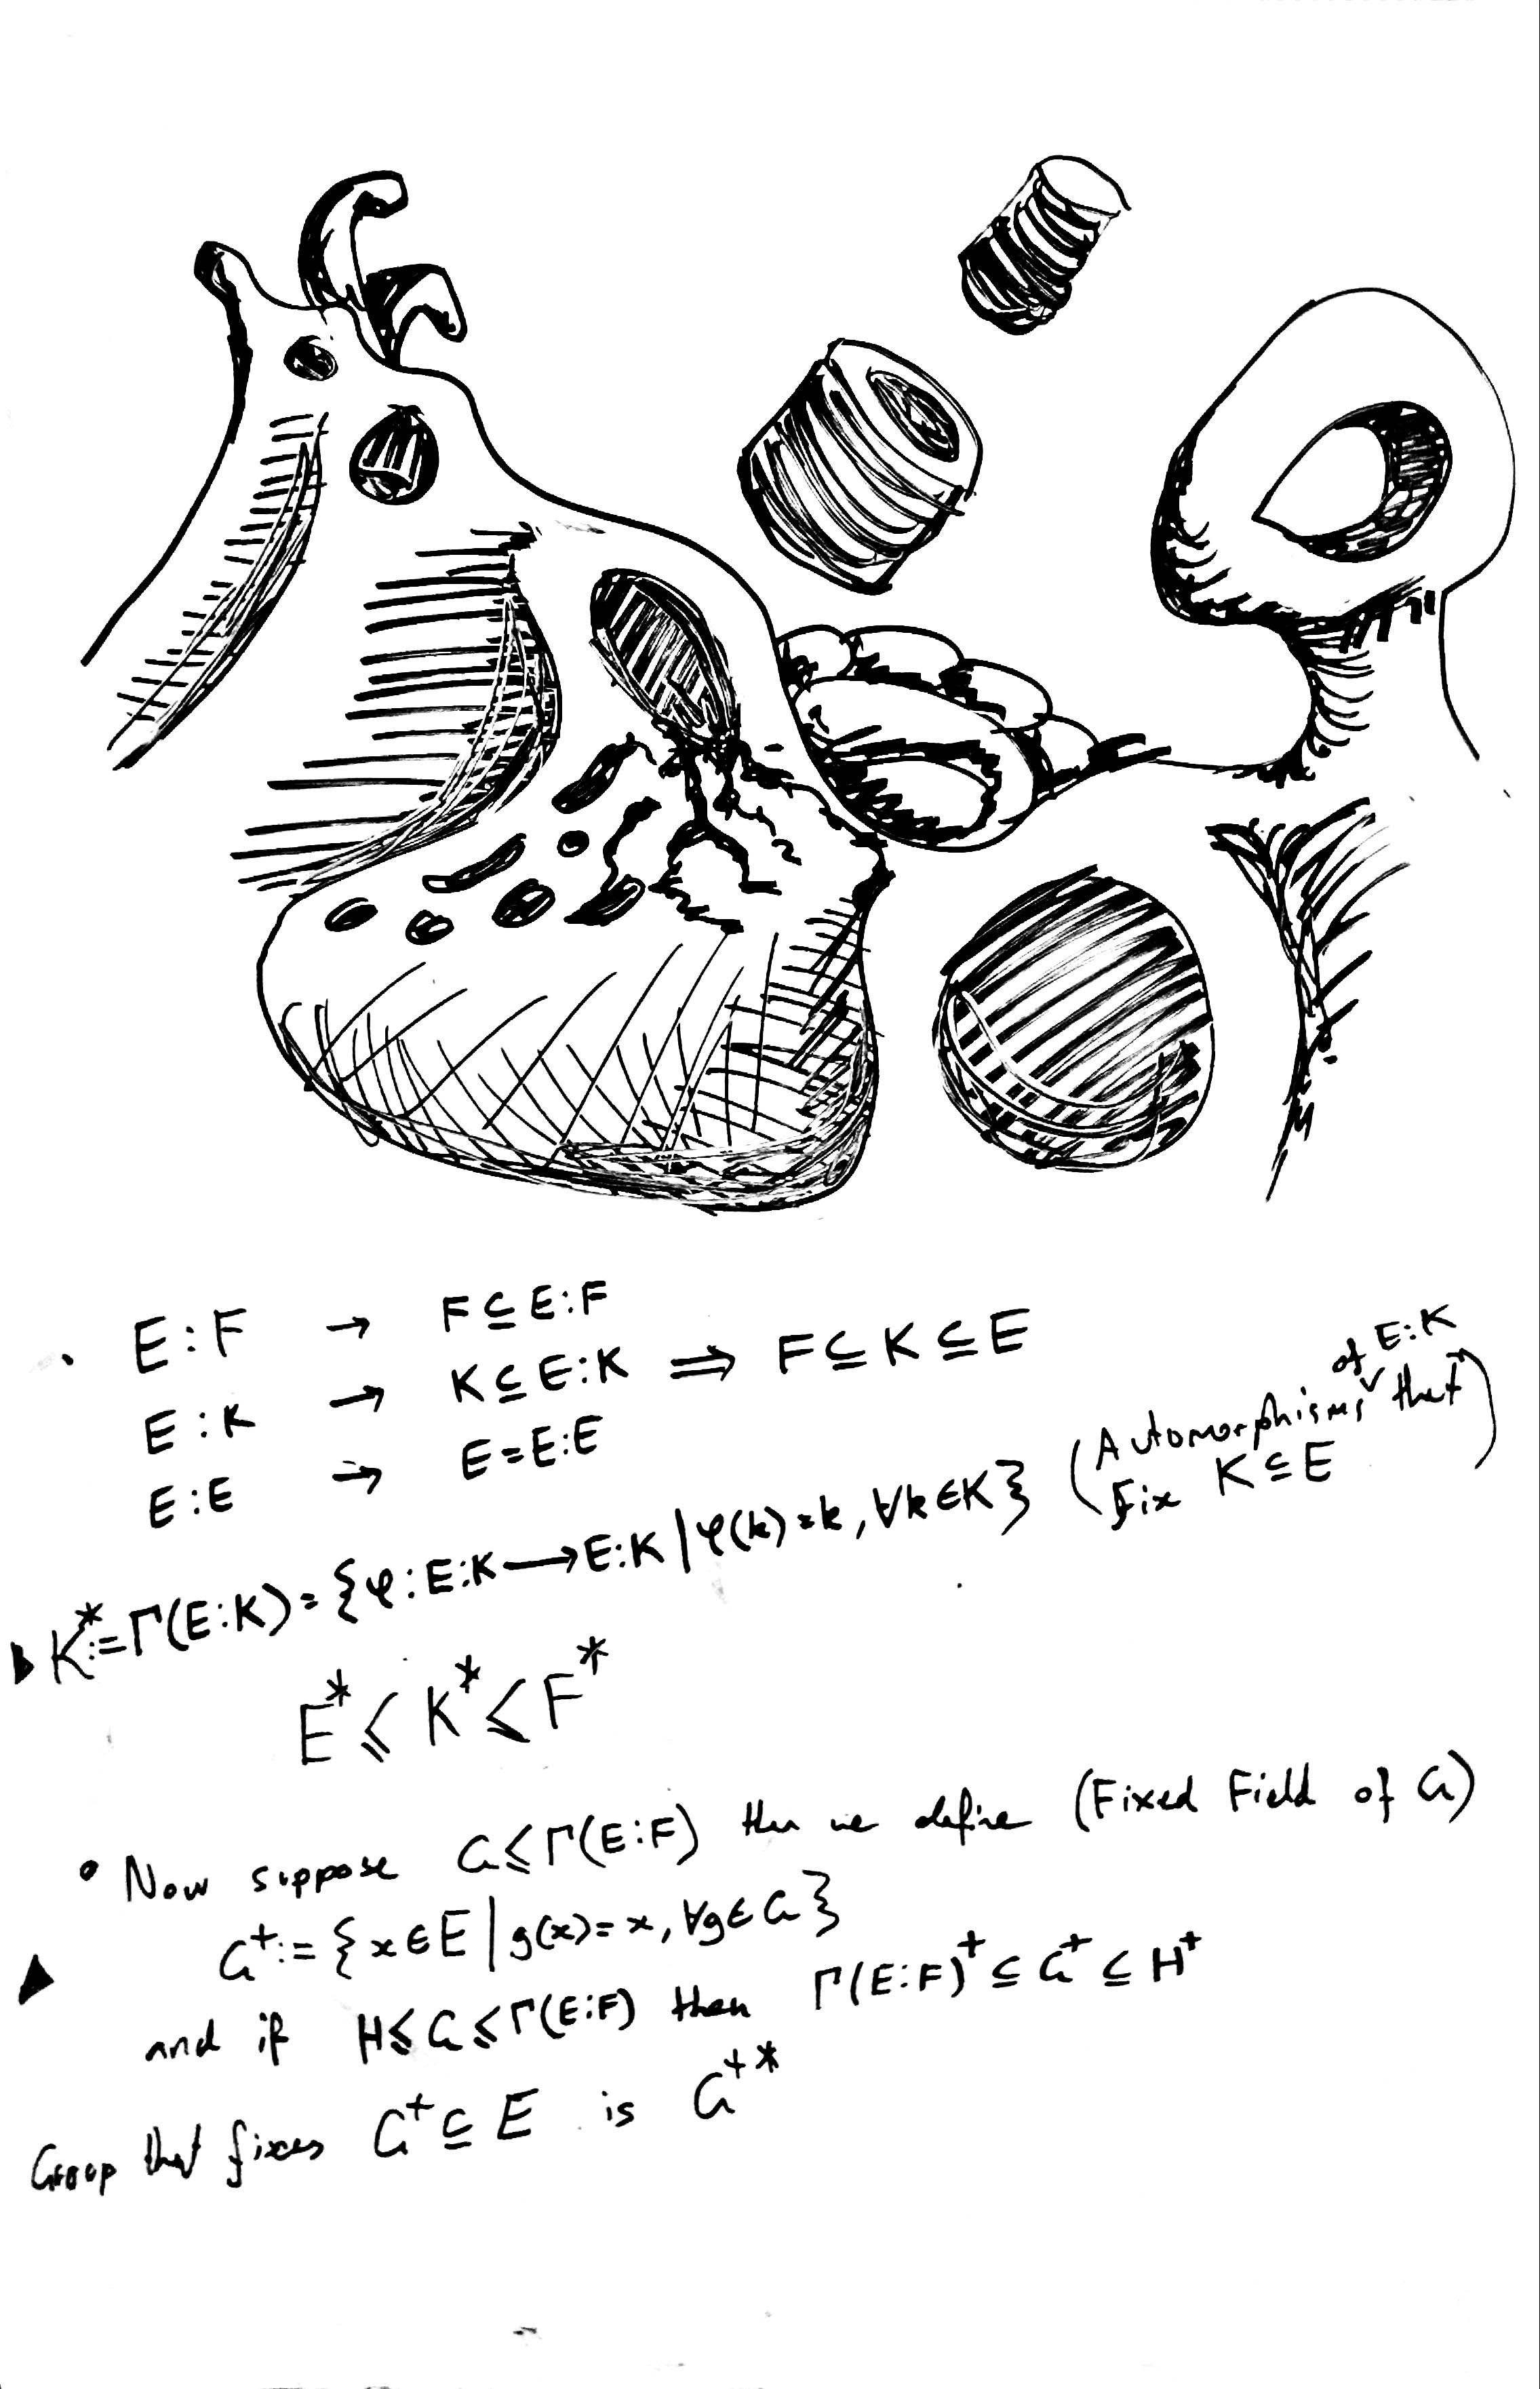 E:F → F⊆E:F
E:K → K⊆E:K ⟹ F⊆K⊆E
E:E → E=E:E
K*:=Γ(E:K)={φ:E:K⟶E:K|φ(k)=k,∀k∈K} (Automorphisms of E:K that
Fix K⊆E)
E*≤K*≤F*
• Now suppose G≤Γ(E:F) then we define (Fixed Field of G)
G⁺:={x∈E|g(x)=x,∀g∈G}
and if H≤G≤Γ(E:F) then Γ(E:F)⁺⊆G⁺⊆H⁺
Group that fixes G⁺⊆E is G⁺*